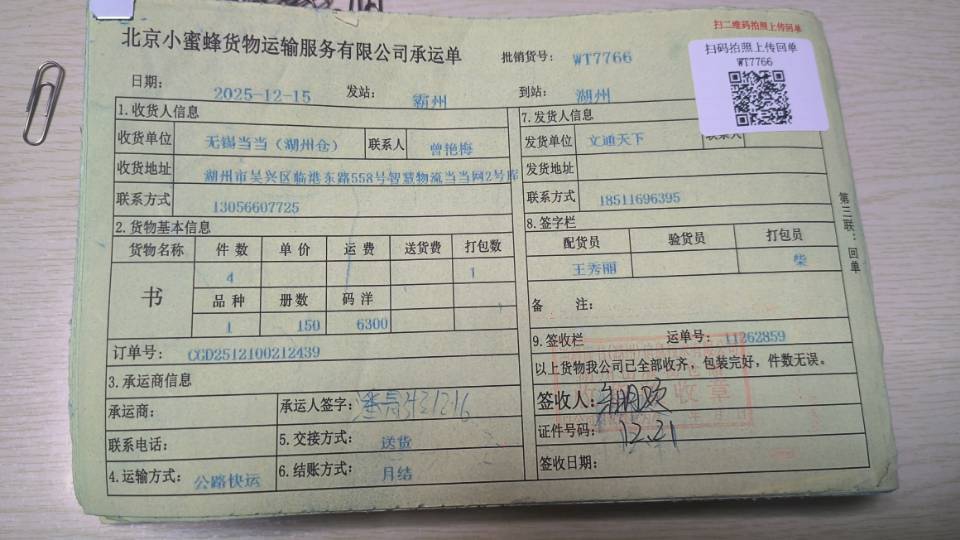 扫二维码拍照上传回单
北京小蜜蜂货物运输服务有限公司承运单
批销货号： WT7766
扫码拍照上传回单
WT7766
日期： 2025-12-15 发站： 霸州 到站： 湖州
1.收货人信息
收货单位 无锡当当（湖州仓） 联系人 曾艳梅
收货地址 湖州市吴兴区临港东路558号智慧物流当当网2号库
联系方式 13056607725
7.发货人信息
发货单位 文通天下 联系人
发货地址
联系方式 18511696395
2.货物基本信息
货物名称 件数 单价 运费 送货费 打包数
4 1
书 品种 册数 码洋
1 150 6300
订单号： CGD2512100212439
8.签字栏
配货员 验货员 打包员
王秀丽 柴
备 注：
3.承运商信息
承运商： 承运人签字：
联系电话： 5.交接方式： 送货
4.运输方式： 公路快运 6.结账方式： 月结
9.签收栏 运单号： 11262859
以上货物我公司已全部收齐，包装完好，件数无误。
签收人：
证件号码： 12.21
签收日期：
收章
第三联：回单